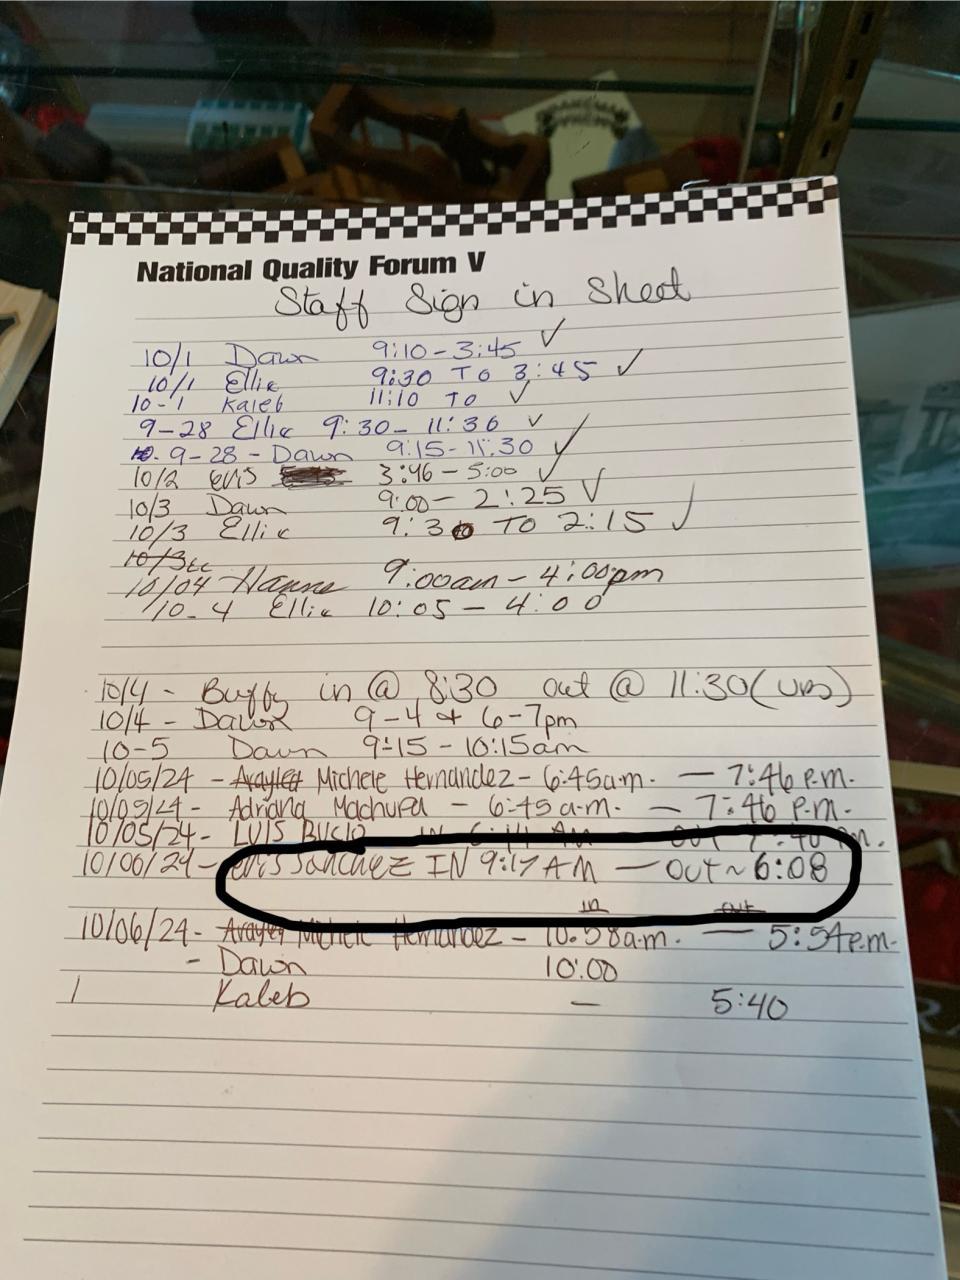 National Quality Forum V
Staff Sign in Sheet
10/1 Dawn 9:10-3:45 ✓
10/1 Ellie 9:30 TO 3:45 ✓
10-1 Kaleb 11:10 TO ✓
9-28 Ellie 9:30-11:36 ✓
9-28-Dawn 9:15-11:30 ✓
10/2 evis 3:46-5:00 ✓
10/3 Dawn 9:00-2:25 ✓
10/3 Ellie 9:30 TO 2:15 ✓
10/3
10/04 9:00am-4:00pm
10-4 Ellie 10:05-4:00
10/4 - Buffy in @ 8:30 out @ 11:30
10/4 - Dawn 9-4 + 6-7pm
10-5 Dawn 9:15-10:15am
10/05/24 - Michele Hernandez - 6:45a.m. — 7:46 P.M.
10/05/24 - Adriana Machuca - 6:45 a.m. — 7:46 P.M.
10/05/24 - LUIS
10/06/24 - evis Sanchez IN 9:17 AM — out ~ 6:08
in out
10/06/24 - Michele Hernandez - 10:58a.m. — 5:54P.M.
- Dawn 10:00
Kaleb — 5:40